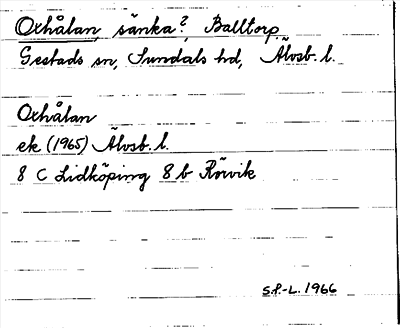 Oxhålan, sänka?, Balltorp
Gestads sn, Sundals hd, Älvsb. l.
Oxhålan
ek (1965) Älvsb. l.
8 C Lidköping 8 b Rörvik
S.P.-L. 1966